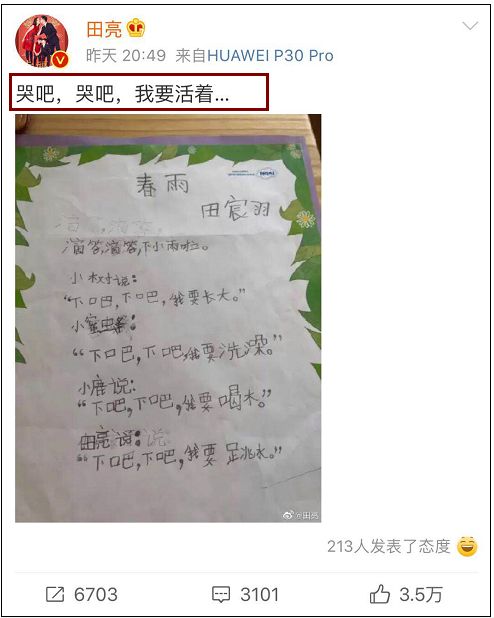 田亮
昨天 20:49 来自HUAWEI P30 Pro
哭吧，哭吧，我要活着...
春雨
田宸羽
滴答,滴答,下小雨啦。
小树说：
“下吧,下吧,我要长大。”
“下吧,下吧,我要洗澡。”
小鹿说：
“下吧,下吧,我要喝水。”
田亮说：说
“下吧,下吧,我要跳水。”
@田亮
213人发表了态度
6703
3101
3.5万